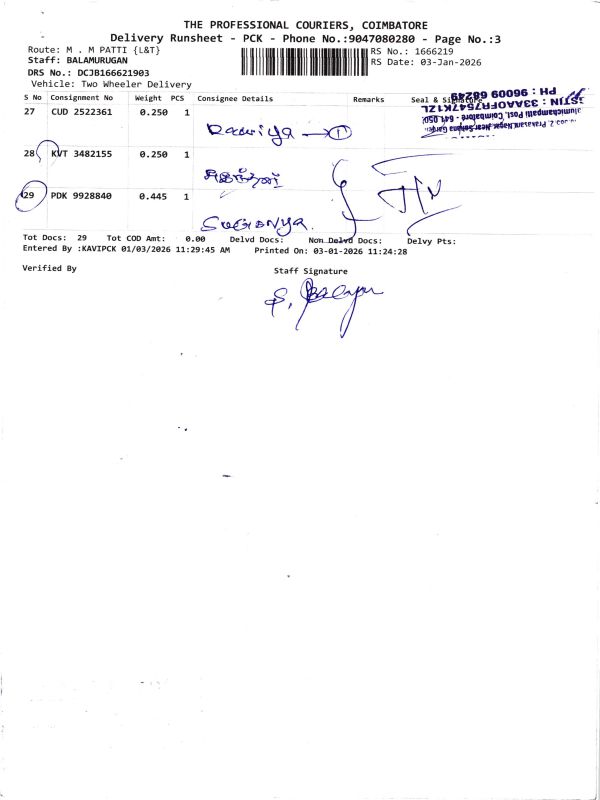 THE PROFESSIONAL COURIERS, COIMBATORE
Delivery Runsheet - PCK - Phone No.:9047080280 - Page No.:3
Route: M . M PATTI {L&T}
RS No.: 1666219
Staff: BALAMURUGAN
RS Date: 03-Jan-2026
DRS No.: DCJB166621903
Vehicle: Two Wheeler Delivery
S No Consignment No Weight PCS Consignee Details Remarks Seal & Signature
PH : 96009 68249
GSTIN : 33AAOFR7547K1ZL
Post, Coimbatore - 641 050.
27 CUD 2522361 0.250 1
28 KVT 3482155 0.250 1
29 PDK 9928840 0.445 1
Tot Docs: 29 Tot COD Amt: 0.00 Delvd Docs: Non Delvd Docs: Delvy Pts:
Entered By :KAVIPCK 01/03/2026 11:29:45 AM Printed On: 03-01-2026 11:24:28
Verified By
Staff Signature